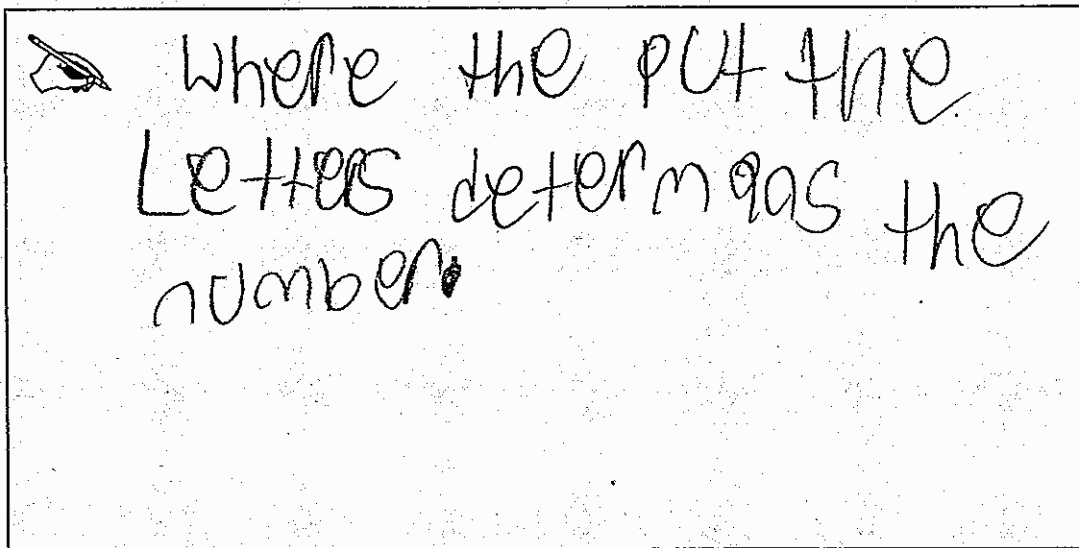 where the put the
Letters determqas the
number.